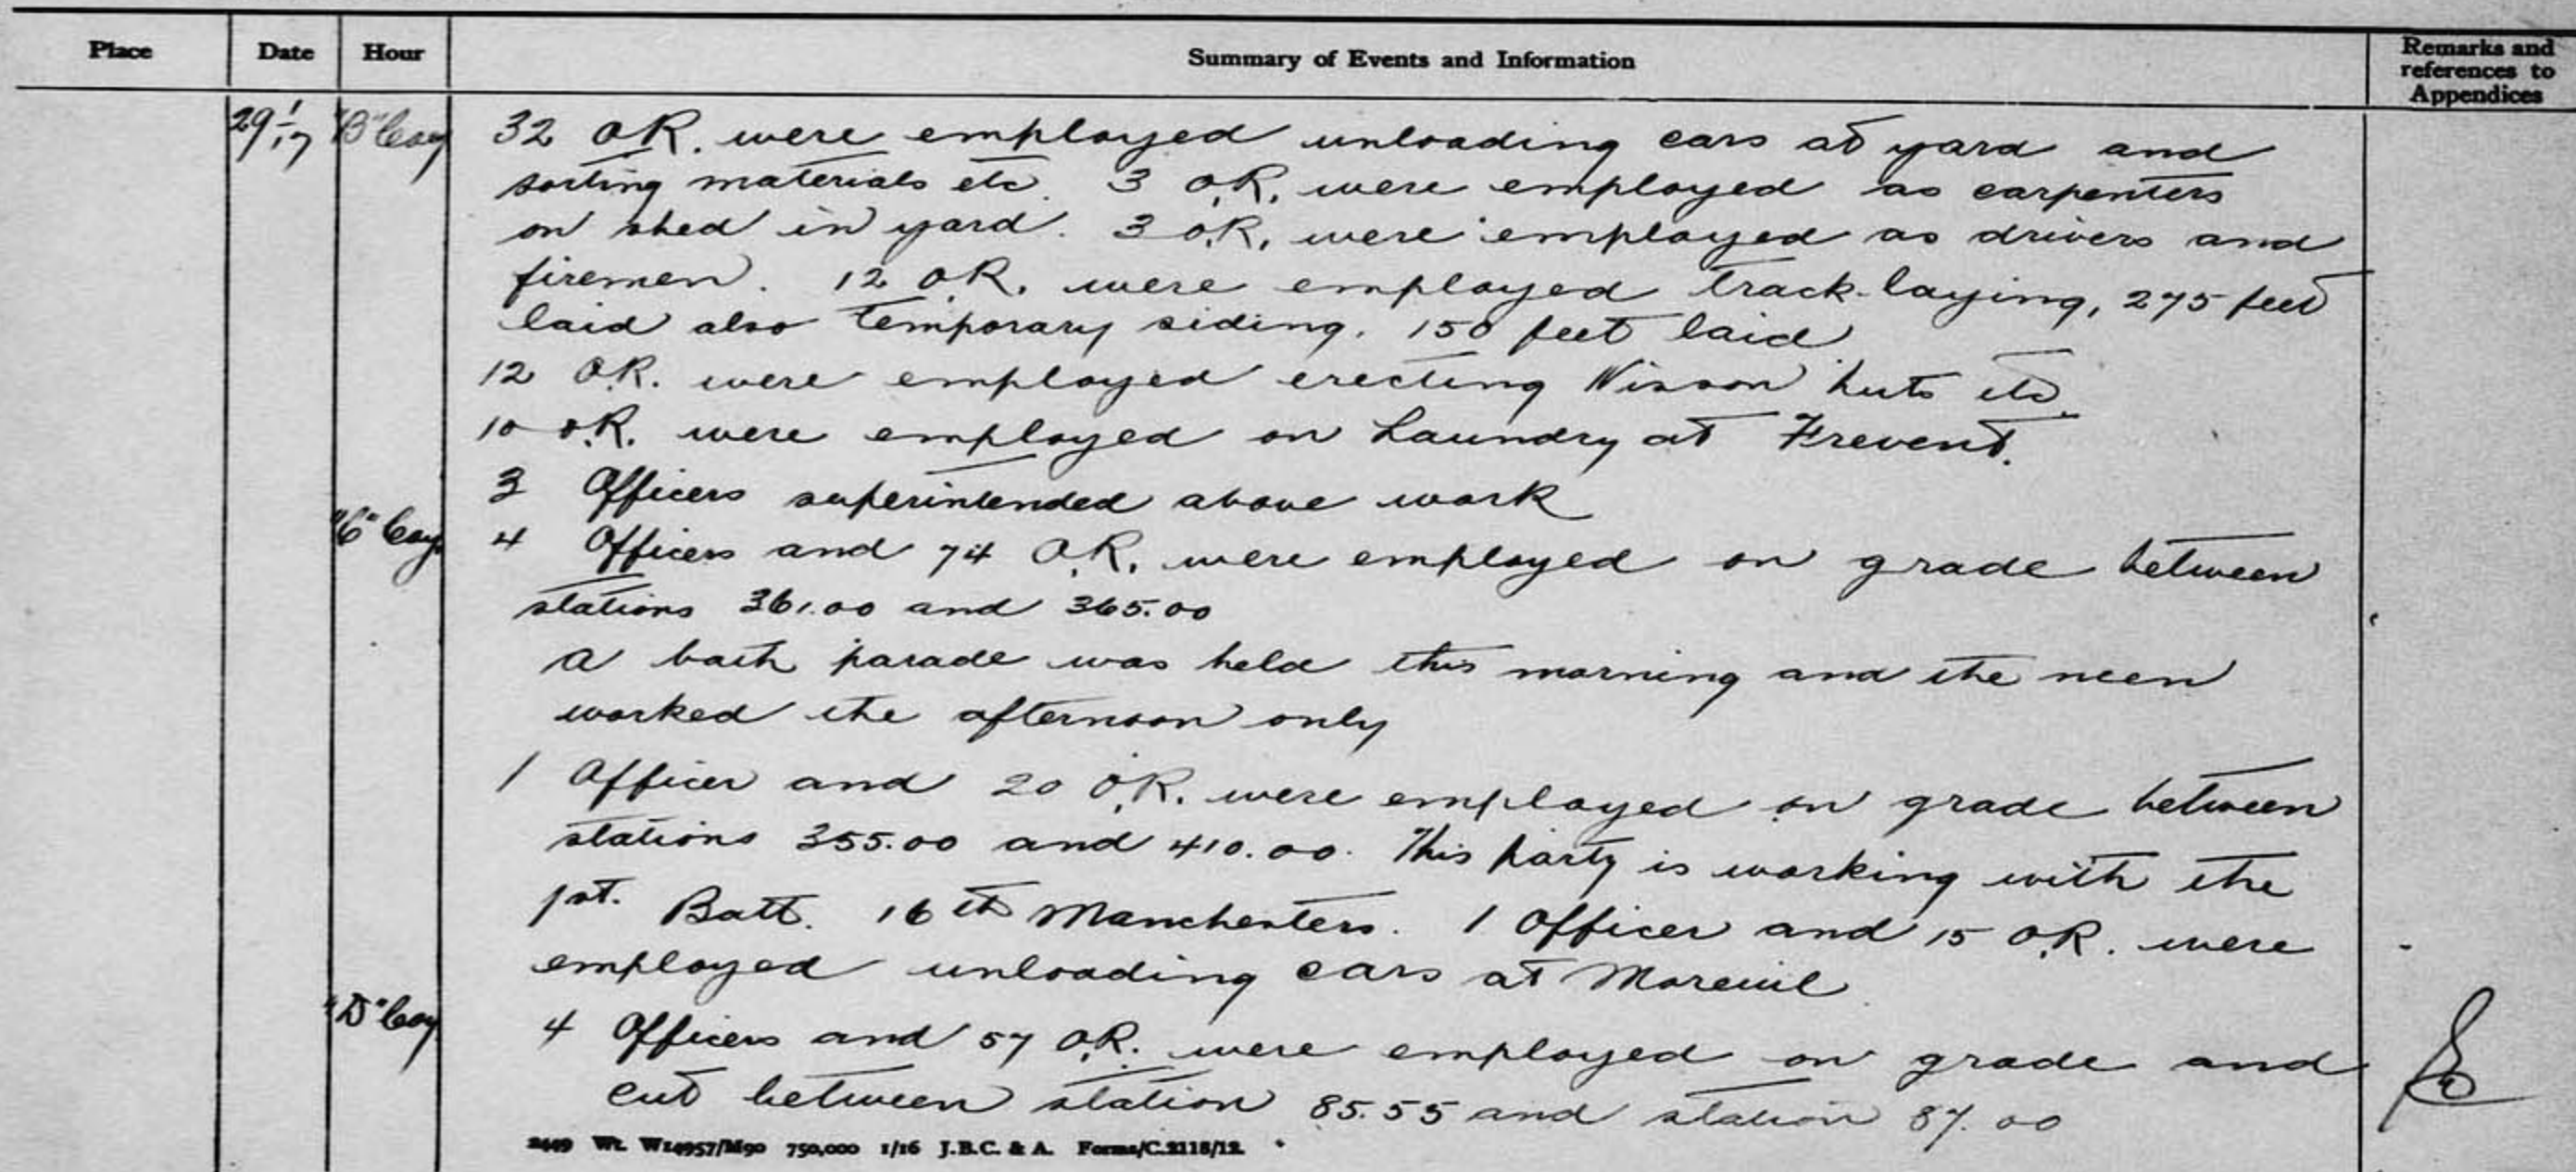 Place Date Hour Summary of Events and Information Remarks and references to Appendices
29/1/17 "B" Coy 32 O.R. were employed unloading cars at yard and
sorting materials etc. 3 O.R. were employed as carpenters
on shed in yard. 3 O.R. were employed as drivers and
firemen. 12 O.R. were employed track-laying, 275 feet
laid also temporary siding. 150 feet laid
12 O.R. were employed erecting Nisson huts etc.
10 O.R. were employed on Laundry at Frevent.
3 Officers superintended above work
"C" Coy. 4 Officers and 74 O.R. were employed on grade between
stations 361.00 and 365.00
A bath parade was held this morning and the men
worked the afternoon only
1 Officer and 20 O.R. were employed on grade between
stations 355.00 and 410.00. This party is working with the
1st. Batt. 16th Manchesters. 1 Officer and 15 O.R. were
employed unloading cars at Moreuil
"D" Coy. 4 Officers and 57 O.R. were employed on grade and
cut between station 85.55 and station 87.00
2449 Wt. W14957/M90 750,000 1/16 J.B.C. & A. Forms/C.2118/12.